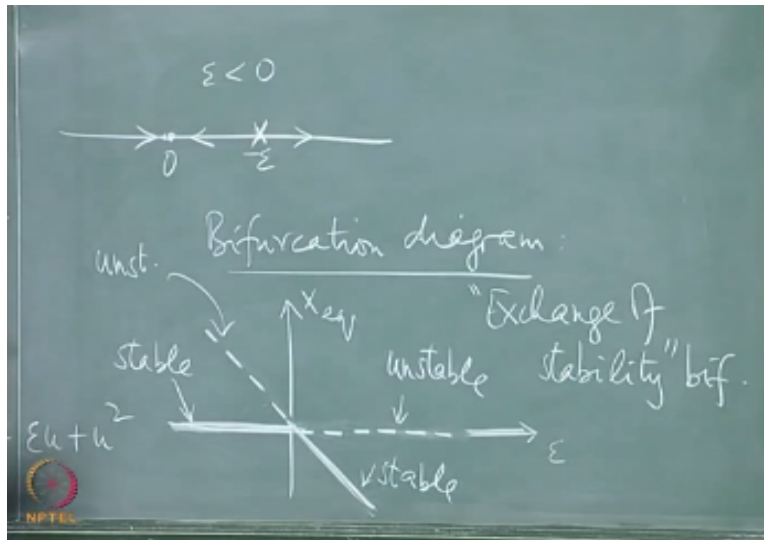 ε < 0
0
-ε
Bifurcation diagram:
unst.
x eq
"Exchange of
stability" bif.
stable
unstable
εu + u²
ε
stable
NPTEL